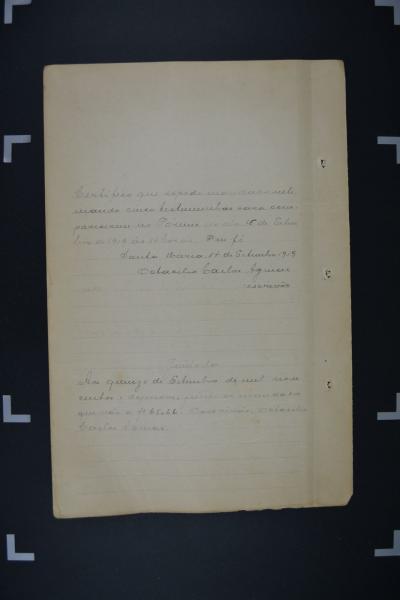 Certifico que expedi mandado inti
mando cinco testemunhas para com
parecerem no Forum no dia 15 de Setem
bro de 1919 ás 14 horas. Dou fé
Santa Maria, 14 de Setembro 1919
Octacilio Carlos Aguiar
escrivão
Juntada
Aos quinze de Setembro de mil nove
centos e dezenove, junto os mandados
que vão a
Carlos Aguiar.